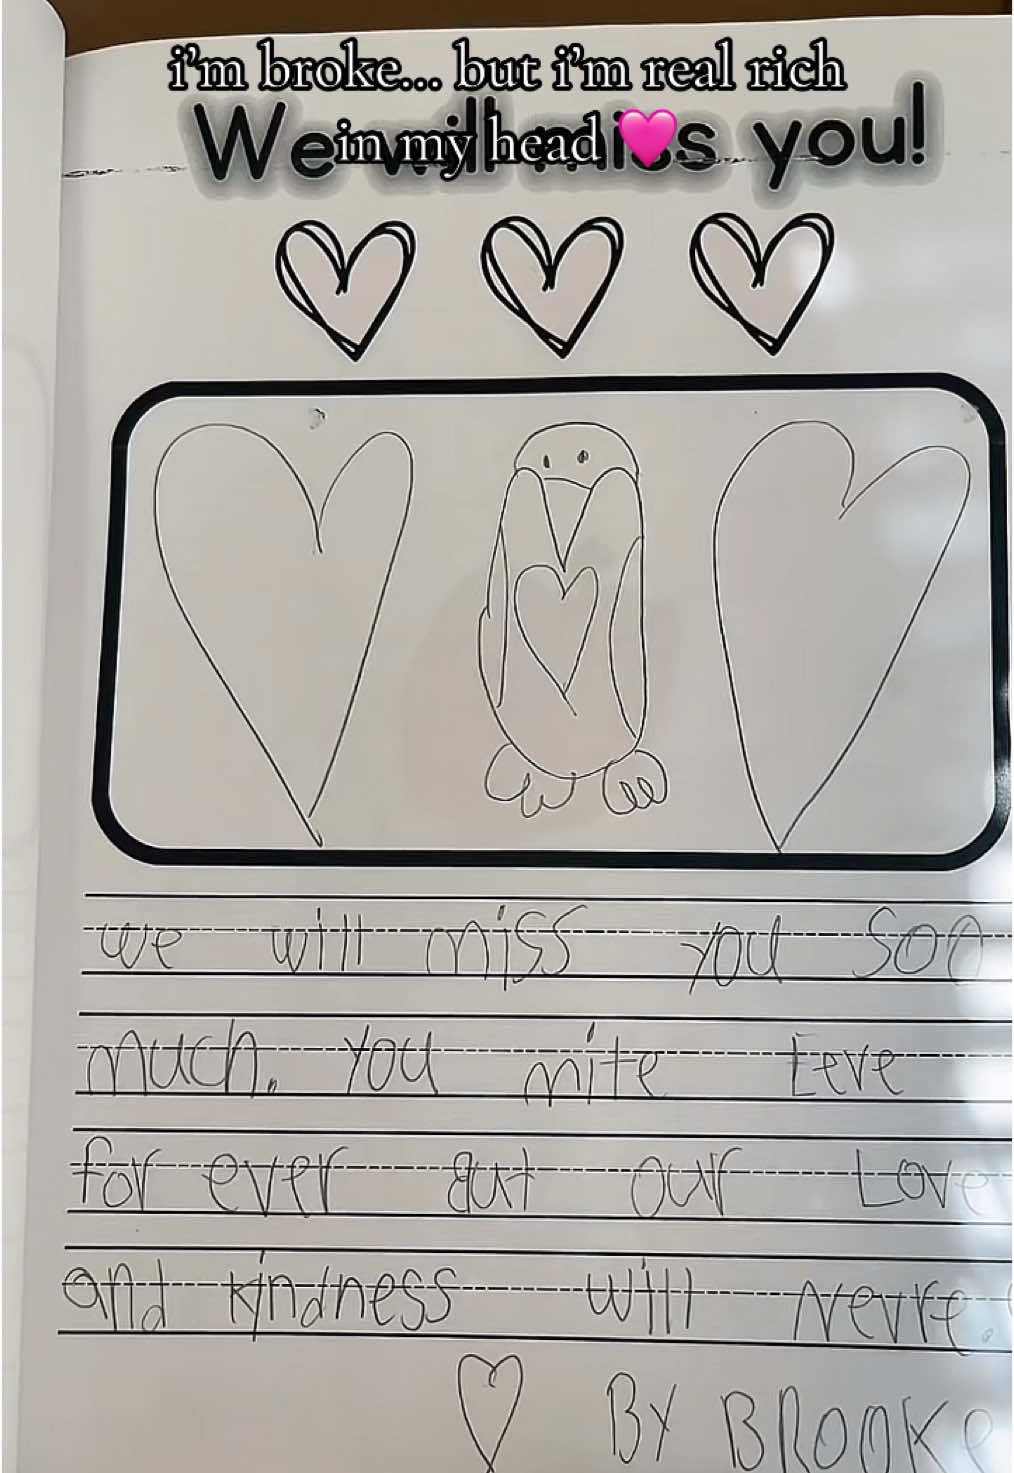 i'm broke... but i'm real rich
in my head 🩷
We will miss you!
we will miss you soo
much. you mite Leve
for ever But our Love
and kindness will Nevre.
By BROOKe